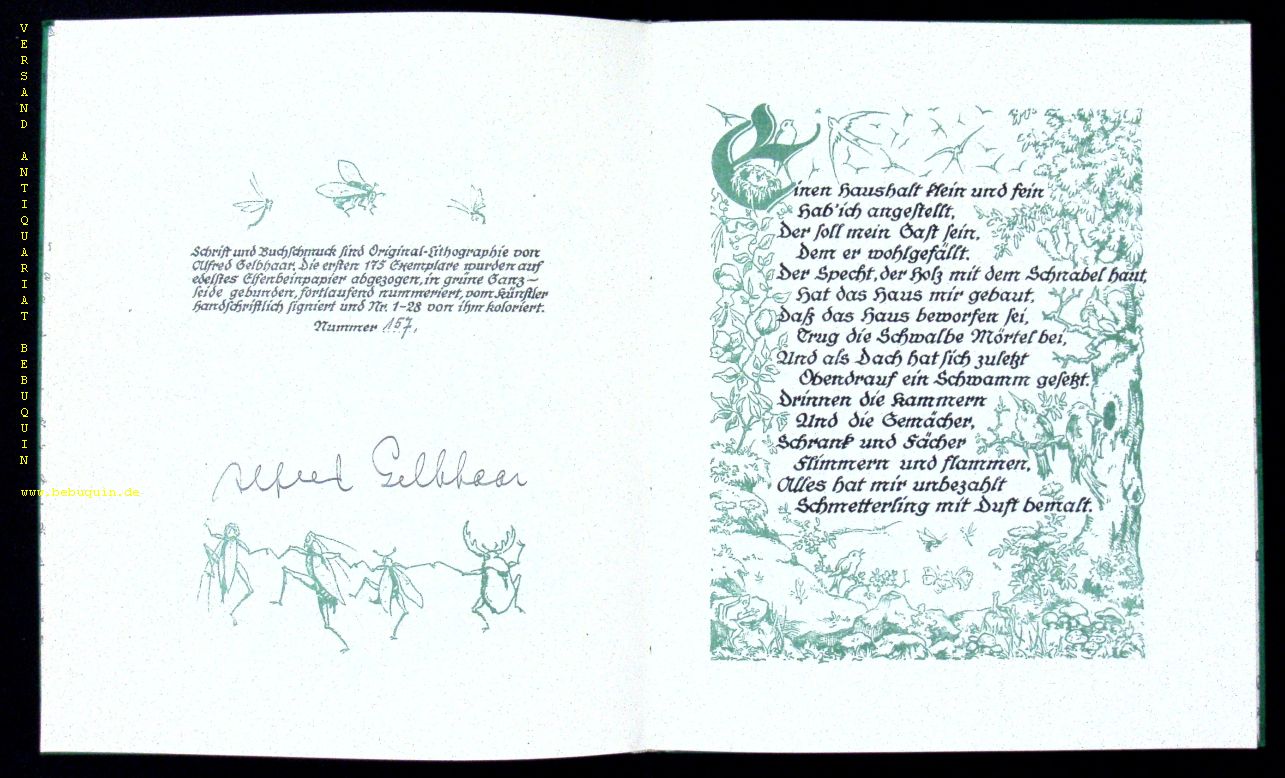 VERSAND ANTIQUARIAT BEBUQUIN
www.bebuquin.de
Schrift und Buchschmuck sind Original-Lithographie von
Alfred Gelbhaar. Die ersten 175 Exemplare wurden auf
edelstes Elfenbeinpapier abgezogen, in grüne Ganz-
seide gebunden, fortlaufend nummeriert, vom Künstler
handschriftlich signiert und Nr. 1-28 von ihm koloriert.
Nummer 157.
Alfred Gelbhaar
Einen Haushalt klein und fein
Hab' ich angestellt,
Der soll mein Gast sein,
Dem er wohlgefällt.
Der Specht, der Holz mit dem Schnabel haut,
Hat das Haus mir gebaut,
Daß das Haus beworfen sei,
Trug die Schwalbe Mörtel bei,
Und als Dach hat sich zuletzt
Obendrauf ein Schwamm gesetzt.
Drinnen die Kammern
Und die Gemächer,
Schrank und Fächer
Flimmern und flammen,
Alles hat mir unbezahlt
Schmetterling mit Duft bemalt.